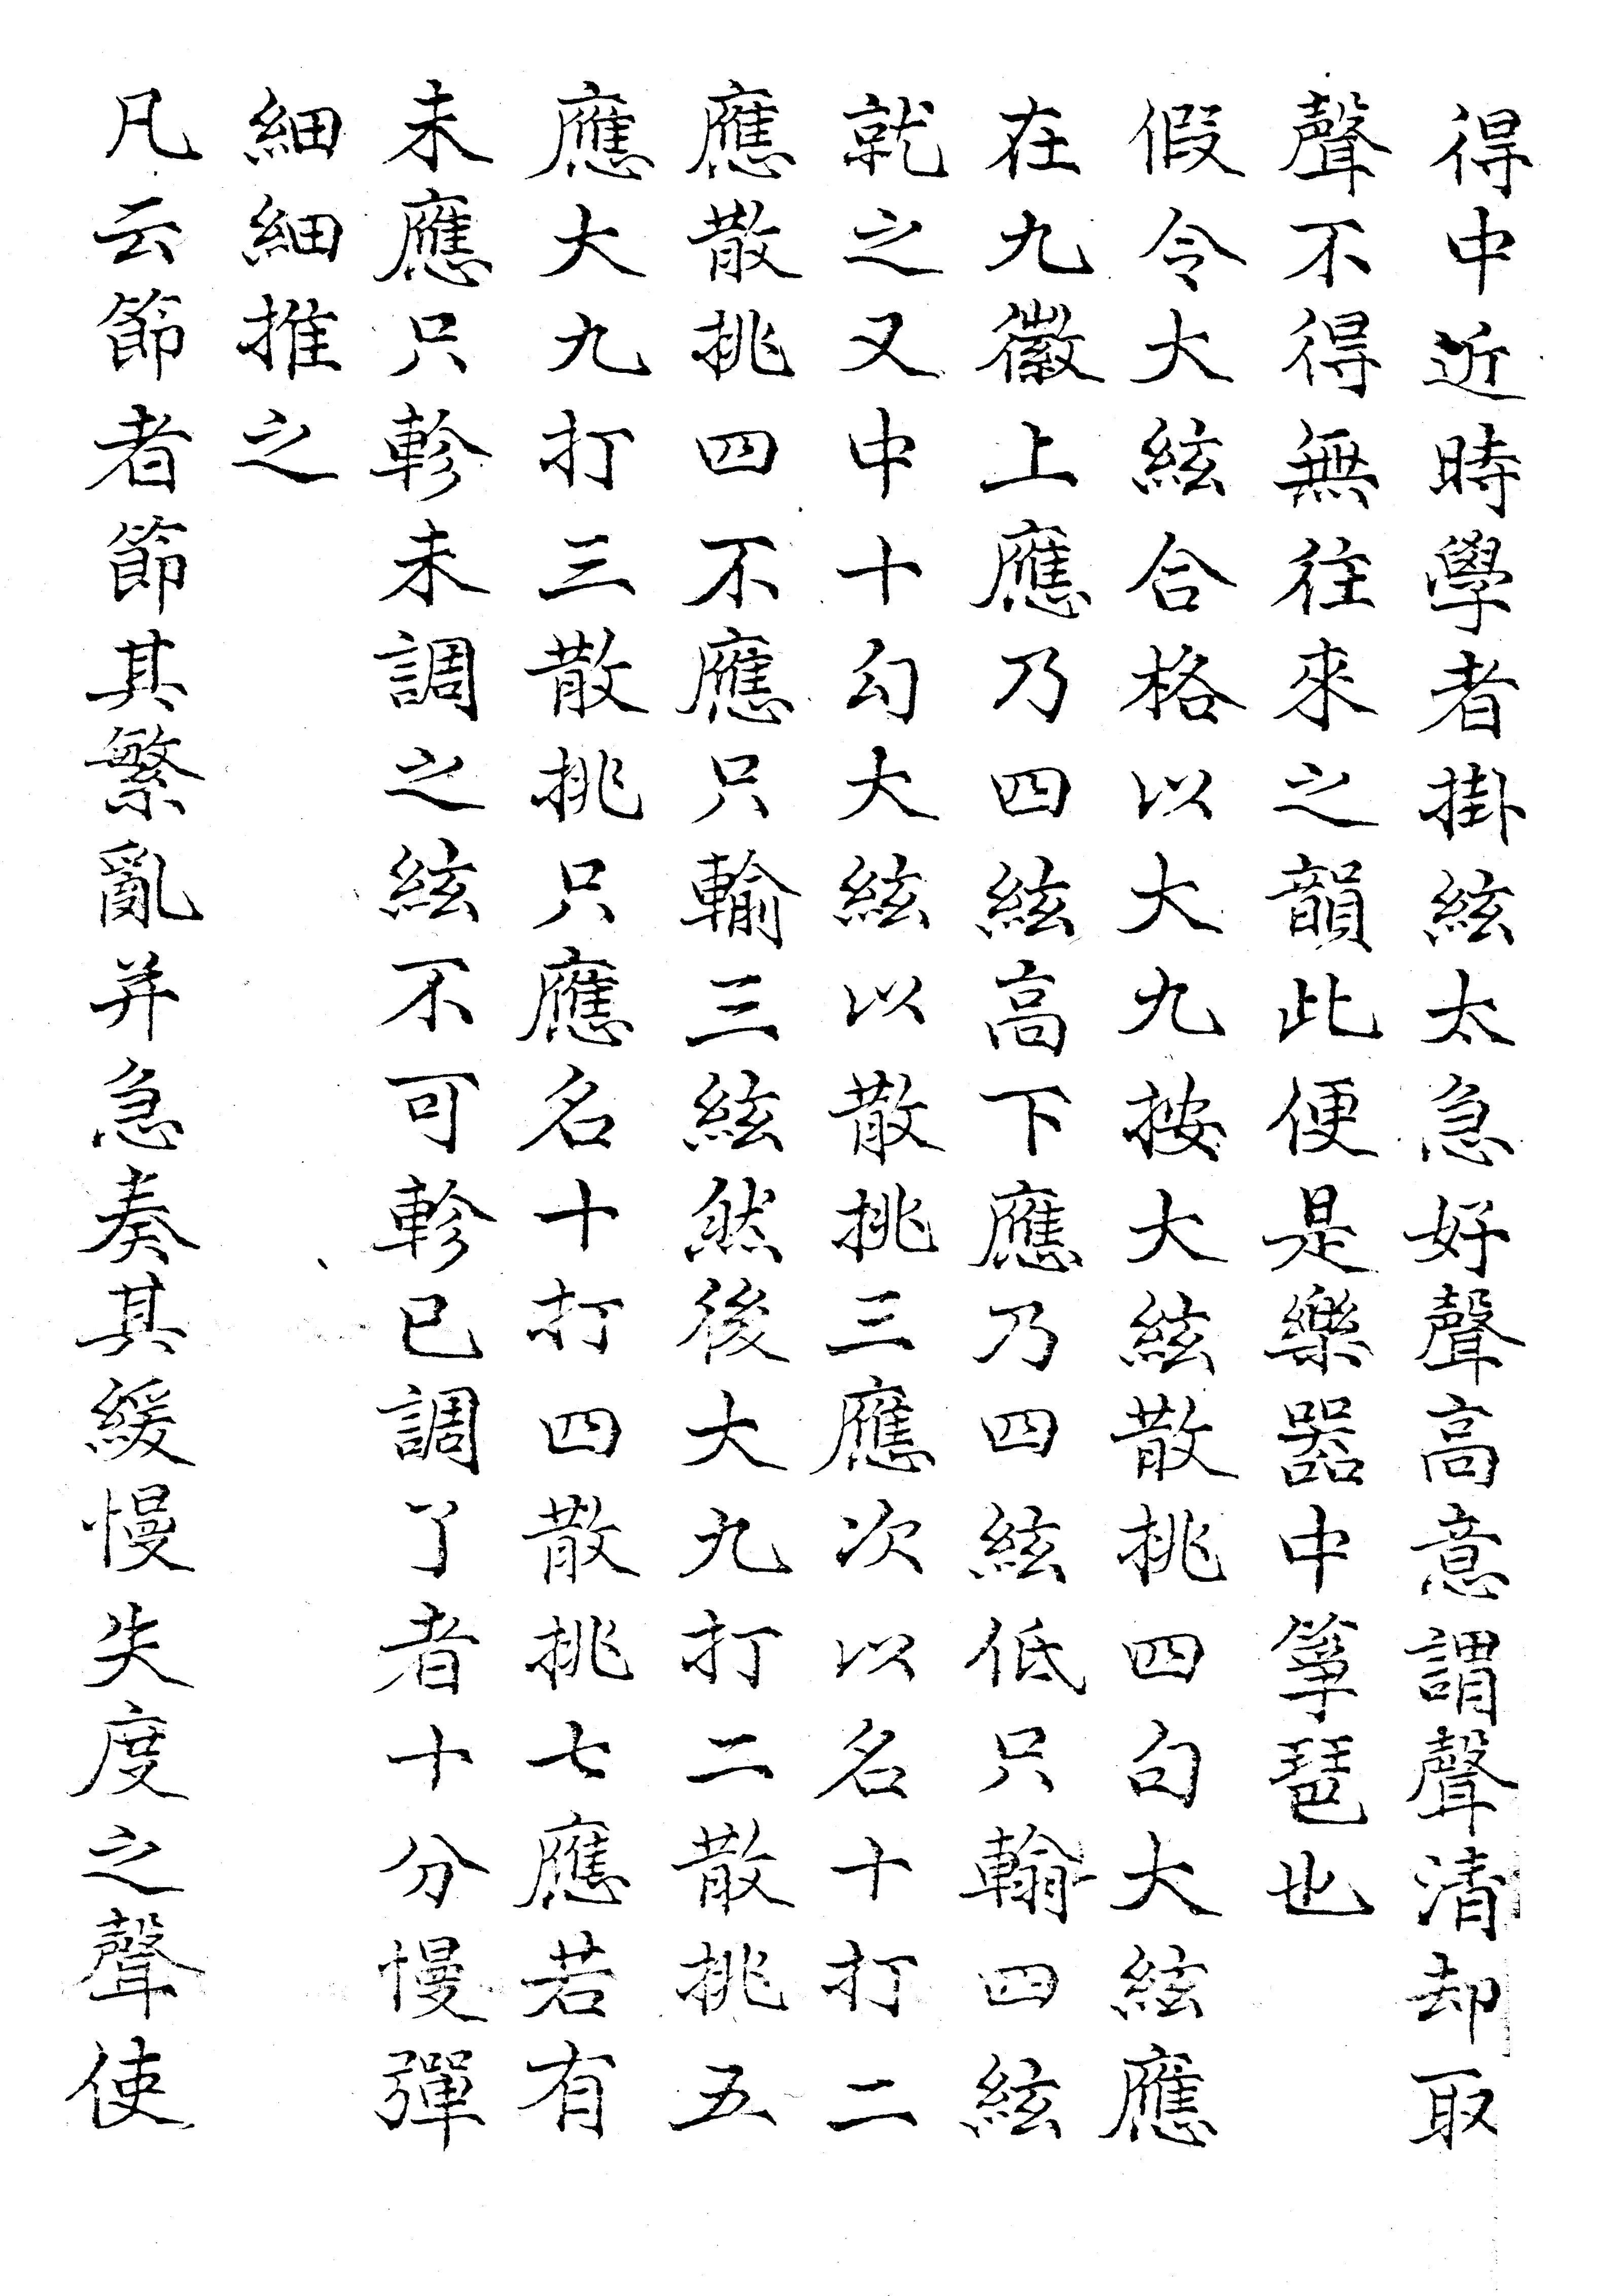 得中近時學者掛絃太急好聲高意謂聲清却取
聲不得無徃來之韻此便是樂噐中筝琶也
假令大絃合格以大九按大絃散挑四句大絃應
在九徽上應乃四絃高下應乃四絃低只翰四絃
就之又中十勾大絃以散挑三應次以名十打二
應散挑四不應只輸三絃然後大九打二散挑五
應大九打三散挑只應名十打四散挑七應若有
未應只軫未調之絃不可軫已調了者十分慢彈
細細推之
凡云節者節其繁亂并急奏其緩慢失度之聲使